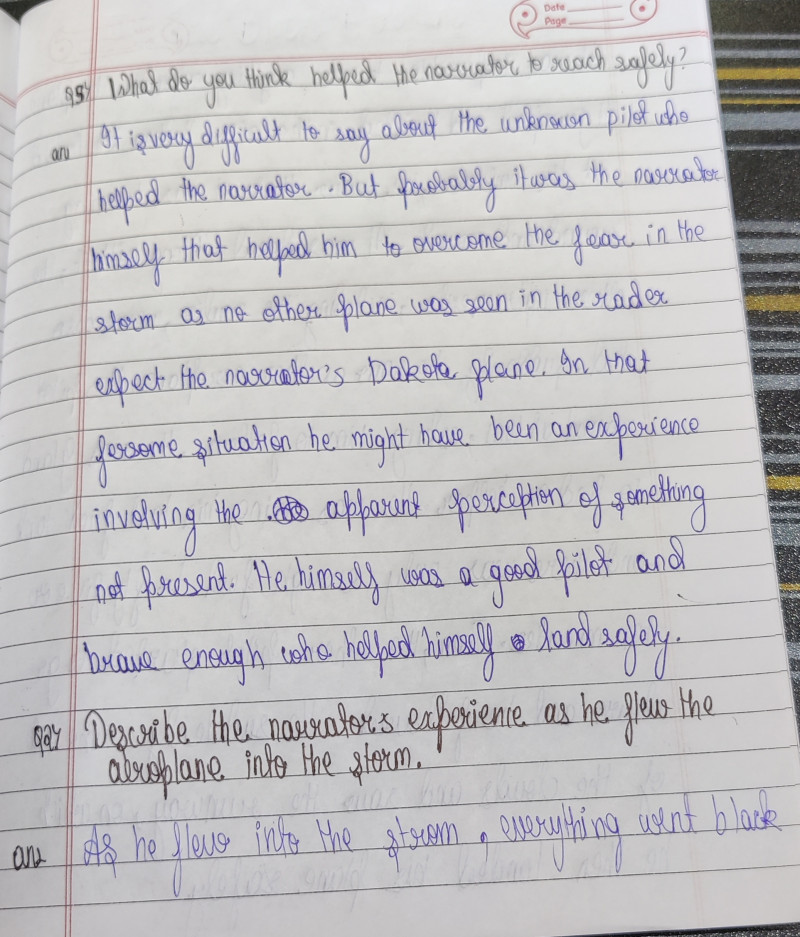 Date
Page
Q5 What do you think helped the narrator to reach safely?
ans It is very difficult to say about the unknown pilot who
helped the narrator. But probably it was the narrator
himself that helped him to overcome the fear in the
storm as no other plane was seen in the rader
expect the narrator's Dakota plane. In that
fersome situation he might have been an experience
involving the apparent perception of something
not present. He himself was a good pilot and
brave enough who helped himself land safely.
Q2 Describe the narrator's experience as he flew the
aeroplane into the storm.
ans As he flew into the strom, everything went black